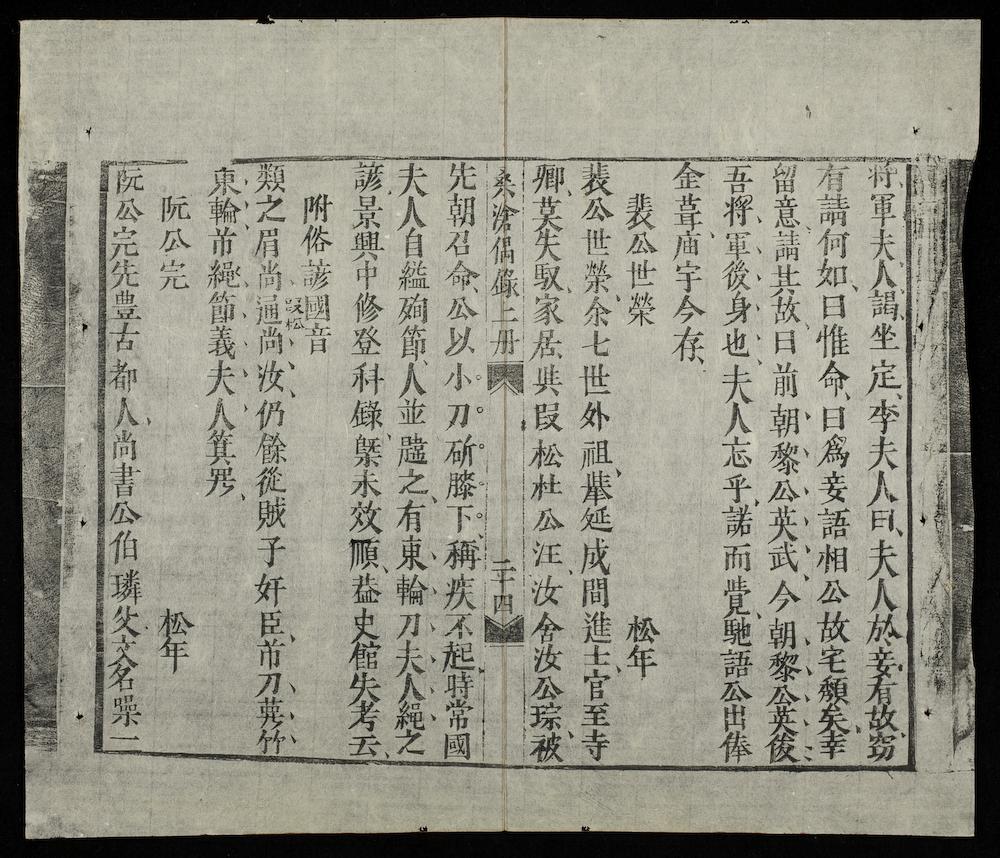 將軍夫人謁坐定李夫人曰夫人於妾有故窃
有請何如曰惟命曰爲妾語相公故宅頽矣幸
留意請其故曰前朝黎公英武今朝黎公英俊
吾將軍後身也夫人忘乎諾而覺馳語公出俸
金葺庙宇今存
裴公世榮 松年
裴公世榮余七世外祖攀延成間進士官至寺
卿莫失馭家居與段松杜公汪汝舍汝公琮被
桑滄偶錄上册 二十四
先朝召命公以小刀斫膝下稱疾不起時常國
夫人自縊殉節人並韪之有東輪刀夫人繩之
諺景興中修登科錄槩未效順益史館失考云
附俗諺國音
類之眉尚通尚汝仍餘從賊子奸臣市刀荑竹
段松
東輪市繩節義夫人箕㖇
阮公完 松年
阮公完先豊古都人尚書公伯璘父文名噪一